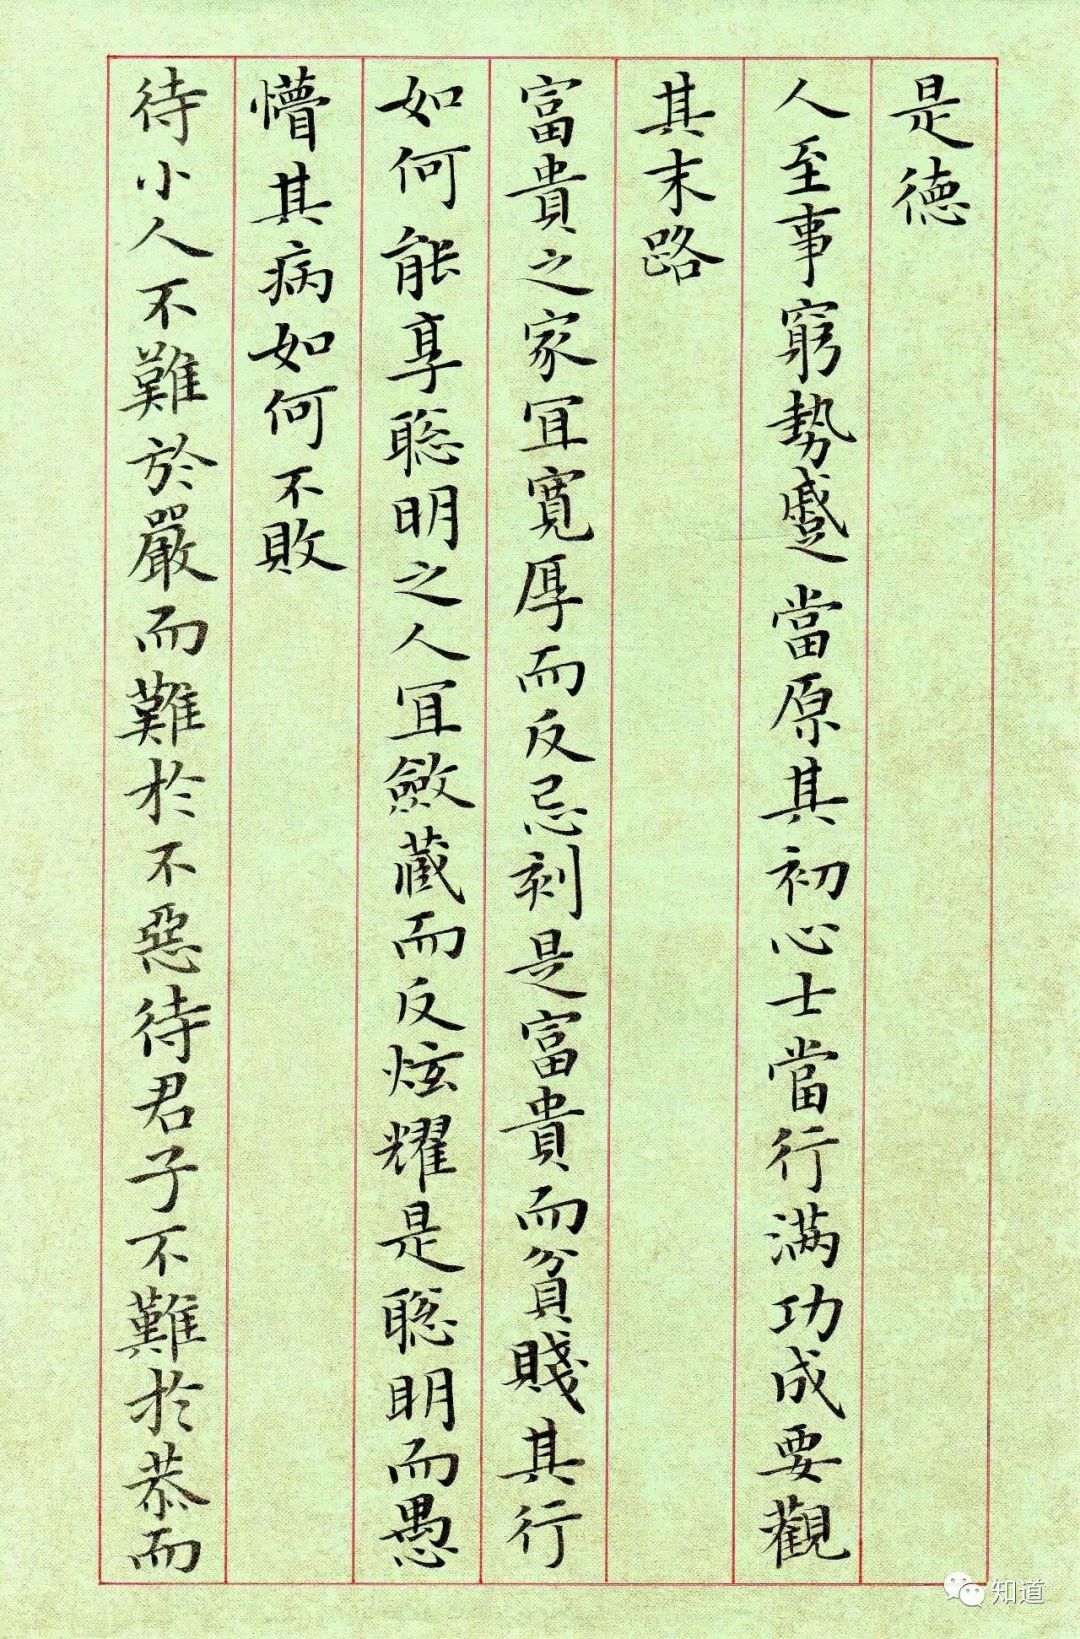 是德
人至事窮勢蹙當原其初心士當行滿功成要觀
其末路
富貴之家宜寬厚而反忌刻是富貴而貧賤其行
如何能享聰明之人宜斂藏而反炫耀是聰明而愚
懵其病如何不敗
待小人不難於嚴而難於不惡待君子不難於恭而
知道